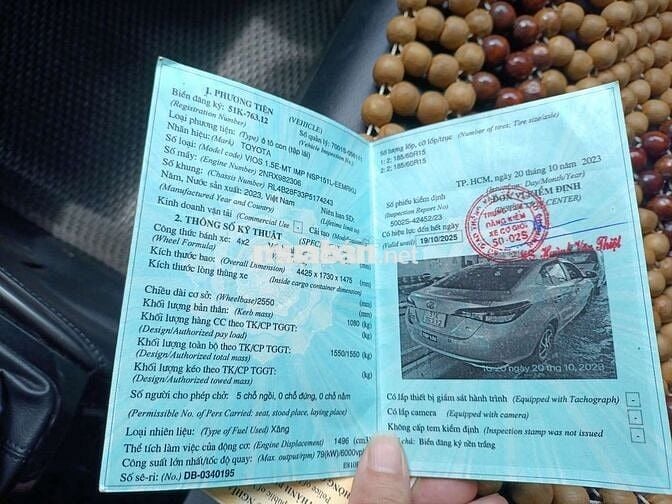 1. PHƯƠNG TIỆN (VEHICLE)
Biển đăng ký: 51K-763.12
(Registration Number)
Số quản lý:
(Vehicle Inspection No.)
Loại phương tiện: (Type) ô tô con (tập lái)
Nhãn hiệu: (Mark) TOYOTA
Số loại: (Model code) VIOS 1.5E-MT IMP NSP151L-EEMRKU
Số máy: (Engine Number) 2NRX982306
Số khung: (Chassis Number) RL4B28F33P5174243
Năm, Nước sản xuất: 2023, Việt Nam
(Manufactured Year and Country)
Niên hạn SD:
(Lifetime limit to)
Kinh doanh vận tải (Commercial Use) - Cải tạo
2. THÔNG SỐ KỸ THUẬT
Công thức bánh xe: 4x2
(Wheel Formula)
Kích thước bao: (Overall Dimension) 4425 x 1730 x 1475 (mm)
Kích thước lòng thùng xe
(Inside cargo container dimension) (mm)
Chiều dài cơ sở: (Wheelbase) 2550 (mm)
Khối lượng bản thân: (Kerb mass) 1080 (kg)
Khối lượng hàng CC theo TK/CP TGGT:
(Design/Authorized pay load) (kg)
Khối lượng toàn bộ theo TK/CP TGGT:
(Design/Authorized total mass) 1550/1550 (kg)
Khối lượng kéo theo TK/CP TGGT:
(Design/Authorized towed mass) (kg)
Số người cho phép chở: 5 chỗ ngồi, 0 chỗ đứng, 0 chỗ nằm
(Permissible No. of Pers Carried: seat, stood place, laying place)
Loại nhiên liệu: (Type of Fuel Used) Xăng
Thể tích làm việc của động cơ: (Engine Displacement) 1496 (cm3)
Công suất lớn nhất/tốc độ quay: (Max. output/rpm) 79(kW)/6000vph
Số sê-ri: (No.) DB-0340195
Số lượng lốp, cỡ lốp/trục
(Number of tires; Tire size/axle)
1: 2; 185/60R15
2: 2; 185/60R15
TP. HCM, ngày 20 tháng 10 năm 2023
(Issued on: Day/Month/Year)
Số phiếu kiểm định
(Inspection Report No)
5002S-42452/23
ĐƠN VỊ KIỂM ĐỊNH
CENTER)
Có hiệu lực đến hết ngày
(Valid until) 19/10/2025
TRUNG TÂM
ĐĂNG KIỂM
XE CƠ GIỚI
50-02S
muaban.net
10:20 20 thg 10, 2023
Có lắp thiết bị giám sát hành trình (Equipped with Tachograph) -
Có lắp camera (Equipped with camera) -
Không cấp tem kiểm định (Inspection stamp was not issued) -
chú: Biển đăng ký nền trắng